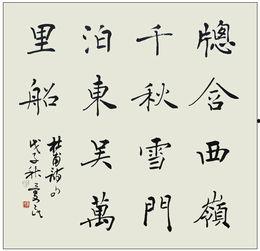 牕含西嶺
千秋雪門
泊東吳萬
里船
杜甫詩
戊子秋